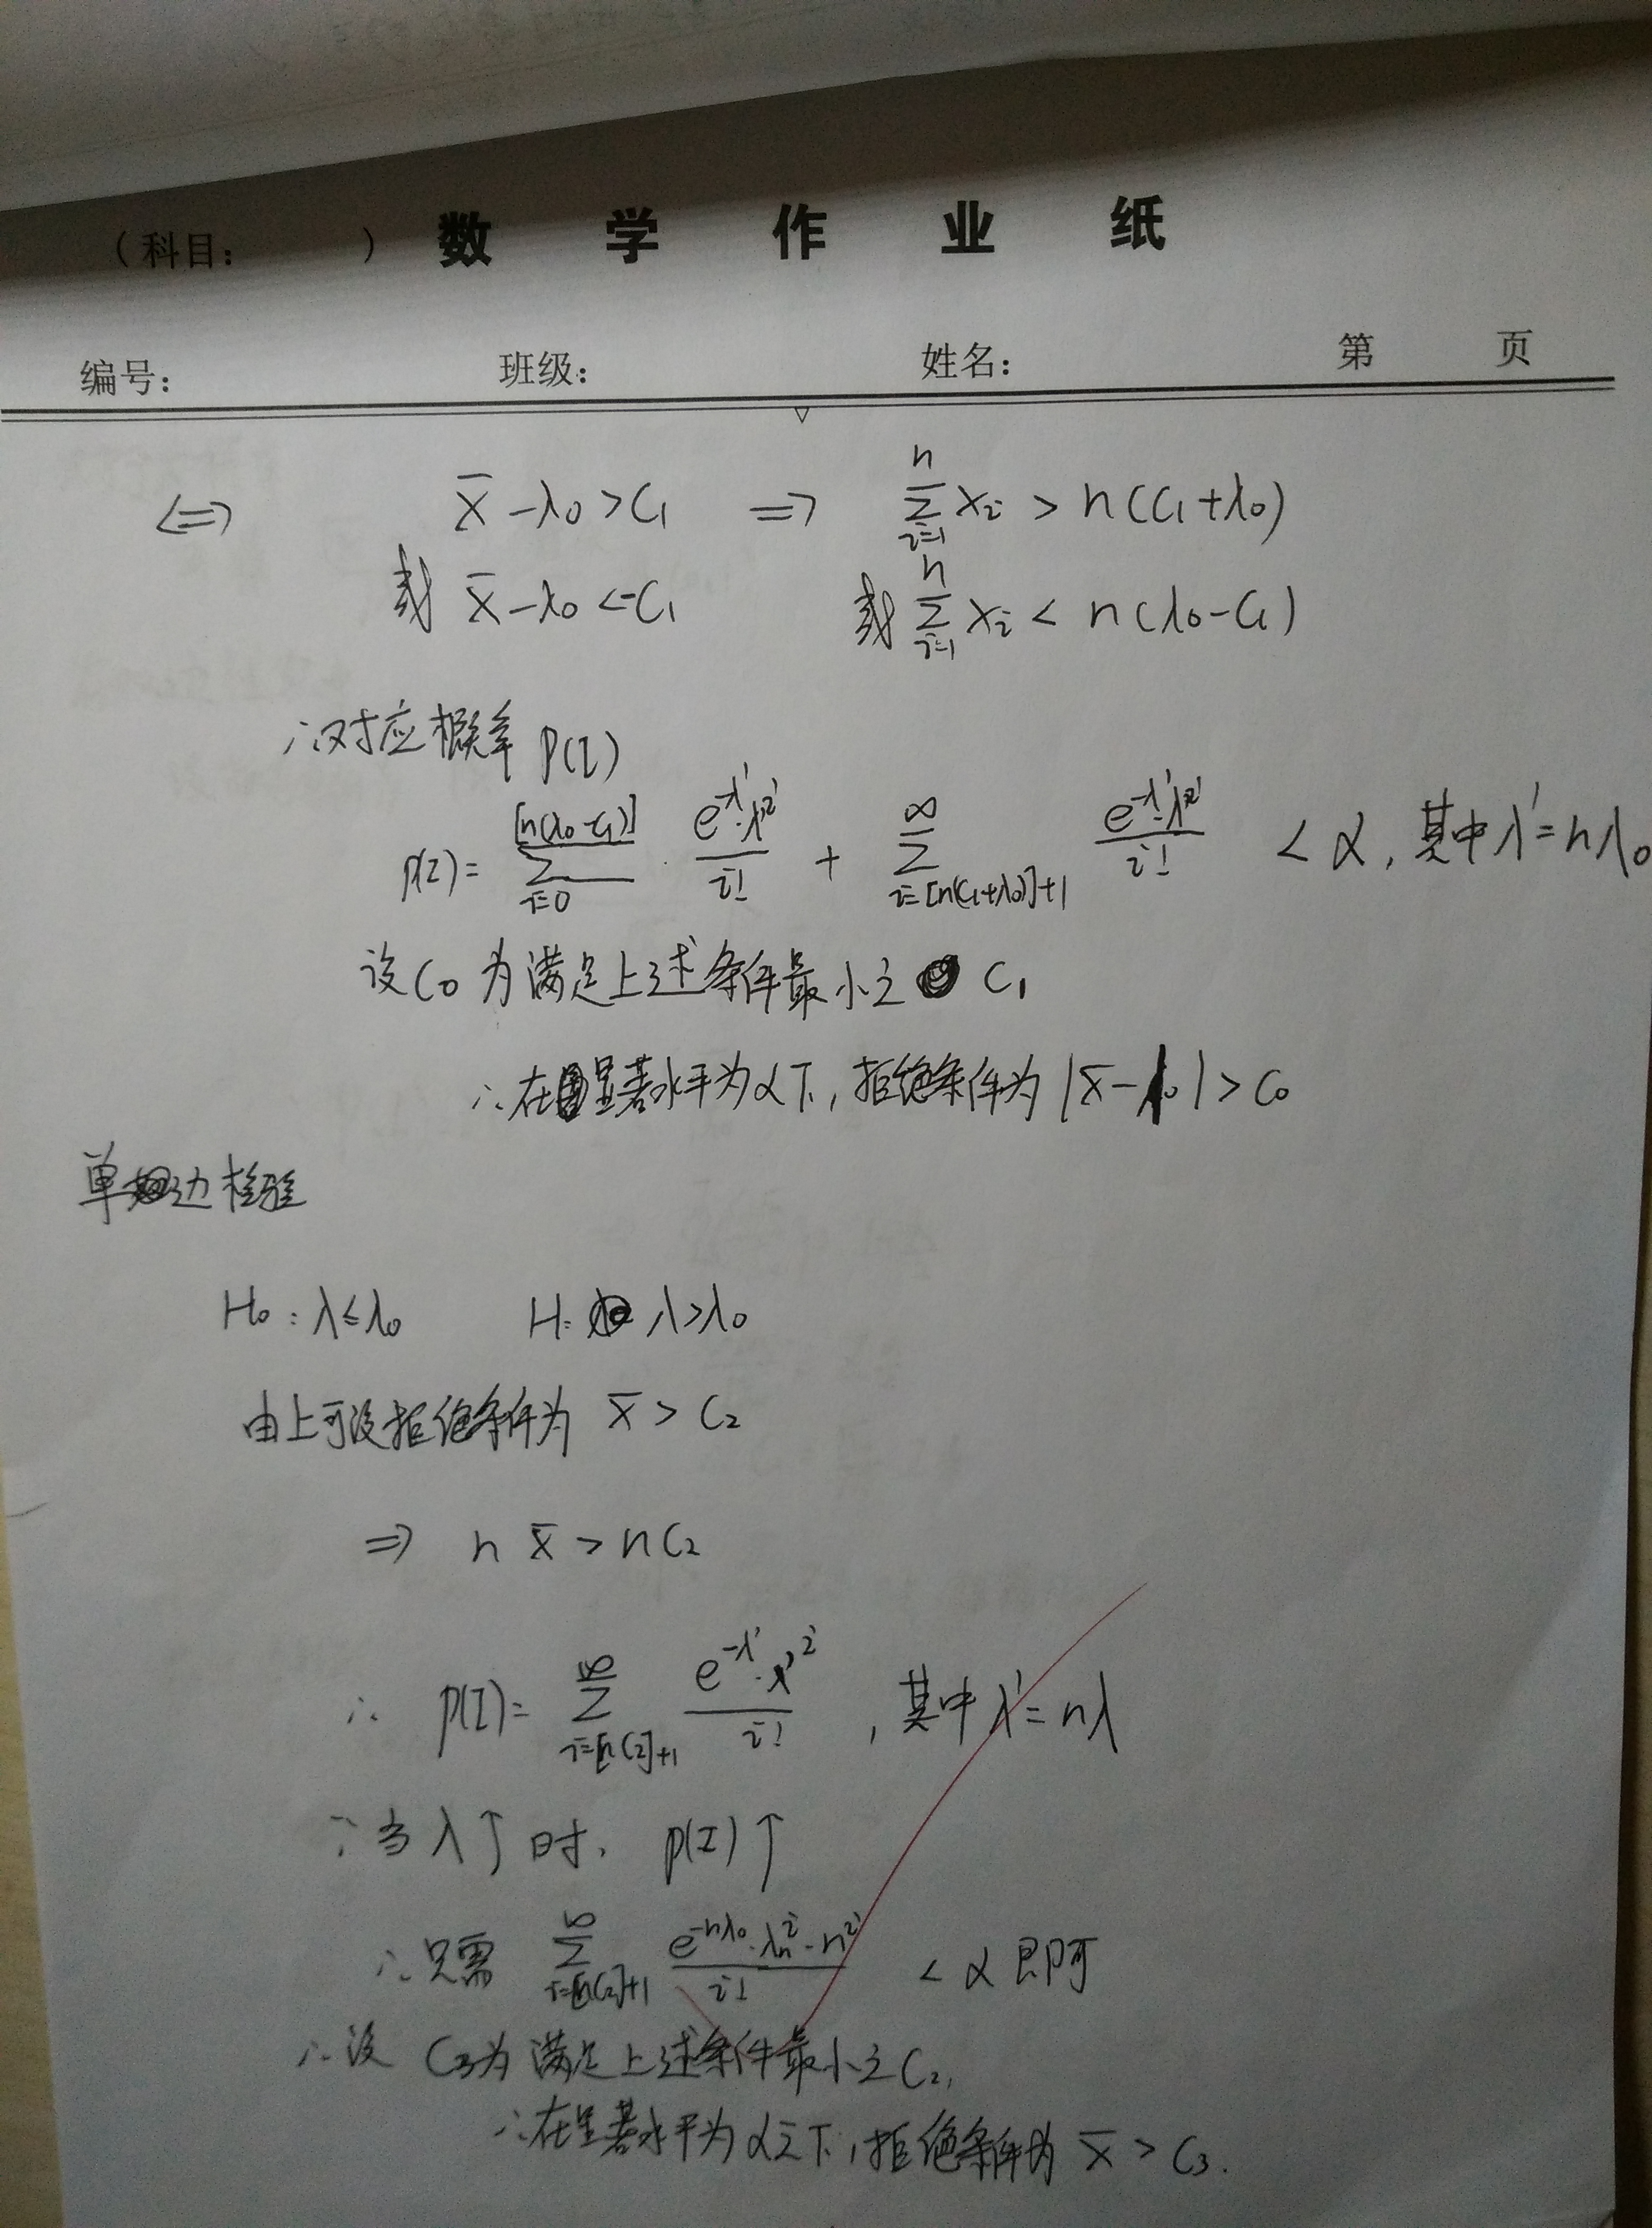 (科目: ) 数 学 作 业 纸
编号: 班级: 姓名: 第 页
⇔ x̄ - λ₀ > C₁ ⇒ Σ_{i=1}^{n} xᵢ > n(C₁+λ₀)
或 x̄ - λ₀ < -C₁ 或 Σ_{i=1}^{n} xᵢ < n(λ₀-C₁)
∴对应概率 P(I)
P(I) = Σ_{i=0}^{[n(λ₀-C₁)]} · e^{-λ'}·λ'^i / i! + Σ_{i=[n(C₁+λ₀)]+1}^{∞} e^{-λ'}·λ'^i / i! < α, 其中λ'=nλ₀
设C₀为满足上述条件最小之 C₁
∴在显著水平为α下, 拒绝条件为 |x̄-λ₀| > C₀
单边检验
H₀: λ≤λ₀ H: λ>λ₀
由上可设拒绝条件为 x̄ > C₂
⇒ n x̄ > n C₂
∴ P(I) = Σ_{i=[nC₂]+1}^{∞} e^{-λ'}·λ'^i / i! , 其中λ'=nλ
∵当λ↑时, P(I)↑
∴只需 Σ_{i=[nC₂]+1}^{∞} e^{-nλ₀}·λ₀^i·n^i / i! < α 即可
∴设 C₃为满足上述条件最小之C₂,
∴在显著水平为α之下, 拒绝条件为 x̄ > C₃.